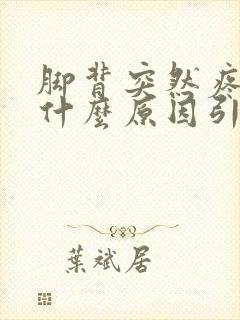 脚背突然疼
什麼原因引
葉斌居